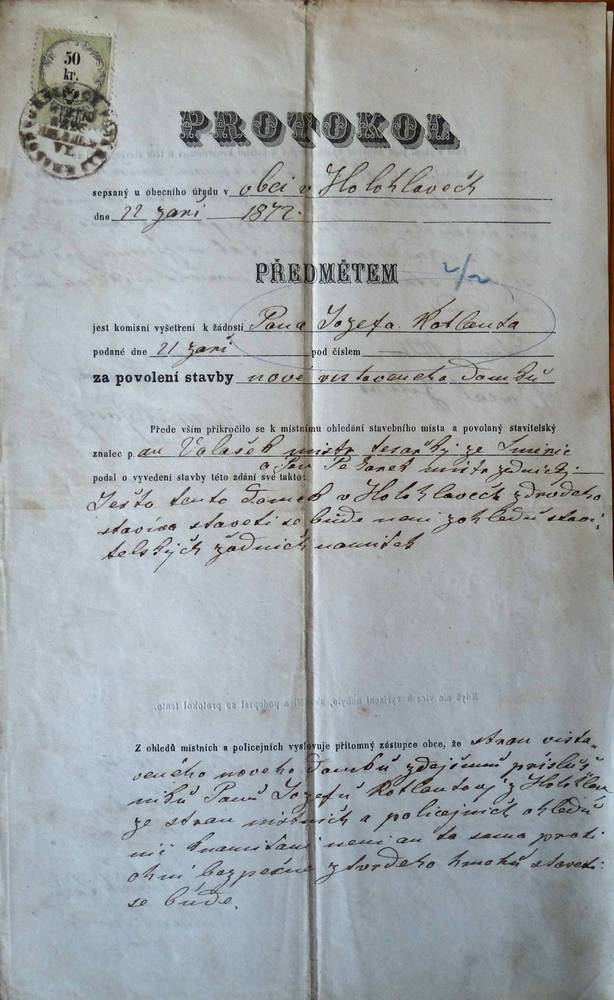 50
kr.
PROTOKOL
sepsaný u obecního úřadu v obci v Holohlavech
dne 22 zari 1872.
PŘEDMĚTEM 2/2
jest komisní vyšetření k žádosti Pana Jozefa Kotlanta
podané dne 21 zari pod číslem
za povolení stavby nové vistaveneho Domků
Přede vším přikročilo se k místnímu ohledání stavebního místa a povolaný stavitelský
znalec p. an Valašek mistr tesařský ze Smiric
a Pan mistr zednický
podal o vyvedení stavby této zdání své takto:
Ješto tento Domek v Holohlavech
staviva staveti se bude neni zohledů stavi-
telských žádnich namitek
Když nic více k vyřízení nebylo, a podepsal se protokol tento.
Z ohledů místních a policejních vyslovuje přítomný zástupce obce, že stran vista-
veného noveho Domků zdejšimu přísluš-
niků Panů Jozefů Kotlantovi z Holohlav
ze stran mistnich a policejnich ohledů
nic k namitani neni an ta sama proti
ohni bezpečne z tvrdeho hmotů staveti
se bude.